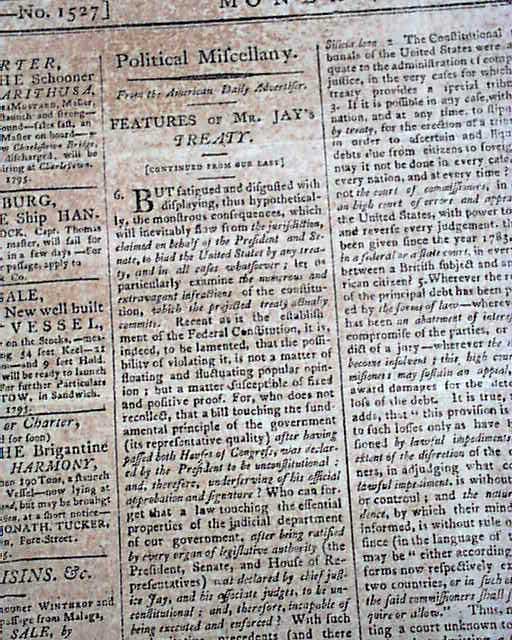 —No. 1527]
MONDA
RTER,
HE Schooner
ARITHUSA,
MUSTARD, Master,
launch and strong—
ound—sails fast, an
Master on board—
Charlestown Bridge,
discharged, will be
iring at Charlestown.
1795.
BURG,
E Ship HAN-
OCK, Capt. Thomas
master, will sail for
in a few days—For
passage, apply to
& Co.
SALE,
New well built
VESSEL,
on the Stocks,—mea-
ng 54 feet Keel—21
—and 9 feet Hold.
will be ready to launch
For further Particulars
TOW, in Sandwich.
1795.
or Charter,
d for soon)
HE Brigantine
HARMONY,
hen 190 Tons, a staunch
Vessel—now lying at
and, but may be brought
on, at a short notice—
JONATH. TUCKER,
n, Fore-Street.
ISINS. &c.
hooner WINTHROP and
passage from Malaga,
SALE, by
Political Miſcellany.
From the American Daily Advertiſer.
FEATURES of Mr. JAY's
TREATY.
[CONTINUED FROM OUR LAST]
6. BUT fatigued and diſguſted with
diſplaying, thus hypothetical-
ly, the monſtrous conſequences, which
will inevitably flow from the juriſdiction,
claimed on behalf of the Preſident and Se-
nate, to bind the United States by any trea-
ty, and in all caſes whatſoever; let us
particularly examine the numerous and
extravagant infractions of the conſtitu-
tion, which the projected treaty actually
commits. Recent as is the eſtabliſh
ment of the Federal Conſtitution, it is,
indeed, to be lamented, that the poſſi-
bility of violating it, is not a matter of
floating and fluctuating popular opin-
ion; it is a matter ſuſceptible of fixed
and poſitive proof. For, who does not
recollect, that a bill touching the fund-
amental principle of the government
(its repreſentative quality) after having
paſſed both Houſes of Congreſs, was declar-
ed by the Preſident to be unconſtitutional;
and, therefore, undeſerving of his official
approbation and ſignature? Who can for-
get that a law touching the eſſential
properties of the judicial department
of our government, after being ratified
by every organ of legiſlative authority (the
Preſident, Senate, and Houſe of Re-
preſentatives) was declared by chief juſt-
ice Jay, and his aſſociate judges, to be un-
conſtitutional; and, therefore, incapable of
being executed and enforced? With ſuch
precedents (and there
2 The Conſtitutional
bunals of the United States were a
quate to the adminiſtration of comp
juſtice, in the very caſes for which
treaty provides a ſpecial tribu
3. If it is poſſible in any caſe, with
nation, and at any time, to ſtip
by treaty, for the erection of a tri
in order to aſcertain and liqui
debts due from citizens to foreig
may it not be done in every caſe
every nation, and at every time?
not the court of commiſſioners, in
an high court of errors and appea
the United States, with power to
and reverſe every judgement, th
been given ſince the year 1783,
in a federal or a ſtate court, in ever
between a Britiſh ſubject and an
ican citizen? 5. Wherever the r
of the principal debt has been p
ed by the forms of law—wherev
has been an abatement of intereſ
compromiſe of the parties, or
dict of a jury—wherever the
become inſolvent; this, high cour
miſſioners may ſuſtain an appeal,
award damages for the det
loſs of the debt. It is true,
adds, that "this proviſion is
to ſuch loſſes only as have b
ſioned by lawful impediments
extent of the diſcretion of the
ners, in adjudging what co
lawful impediment, is without
or controul; and the natur
dence, by which their mind
informed, is without rule o
ſince (in the language of
may be "either according
forms now reſpectively ex
two countries, or in ſuch ot
the ſaid commiſſioners ſhall ſ
quire or allow." Thus,
ing a court unknown to